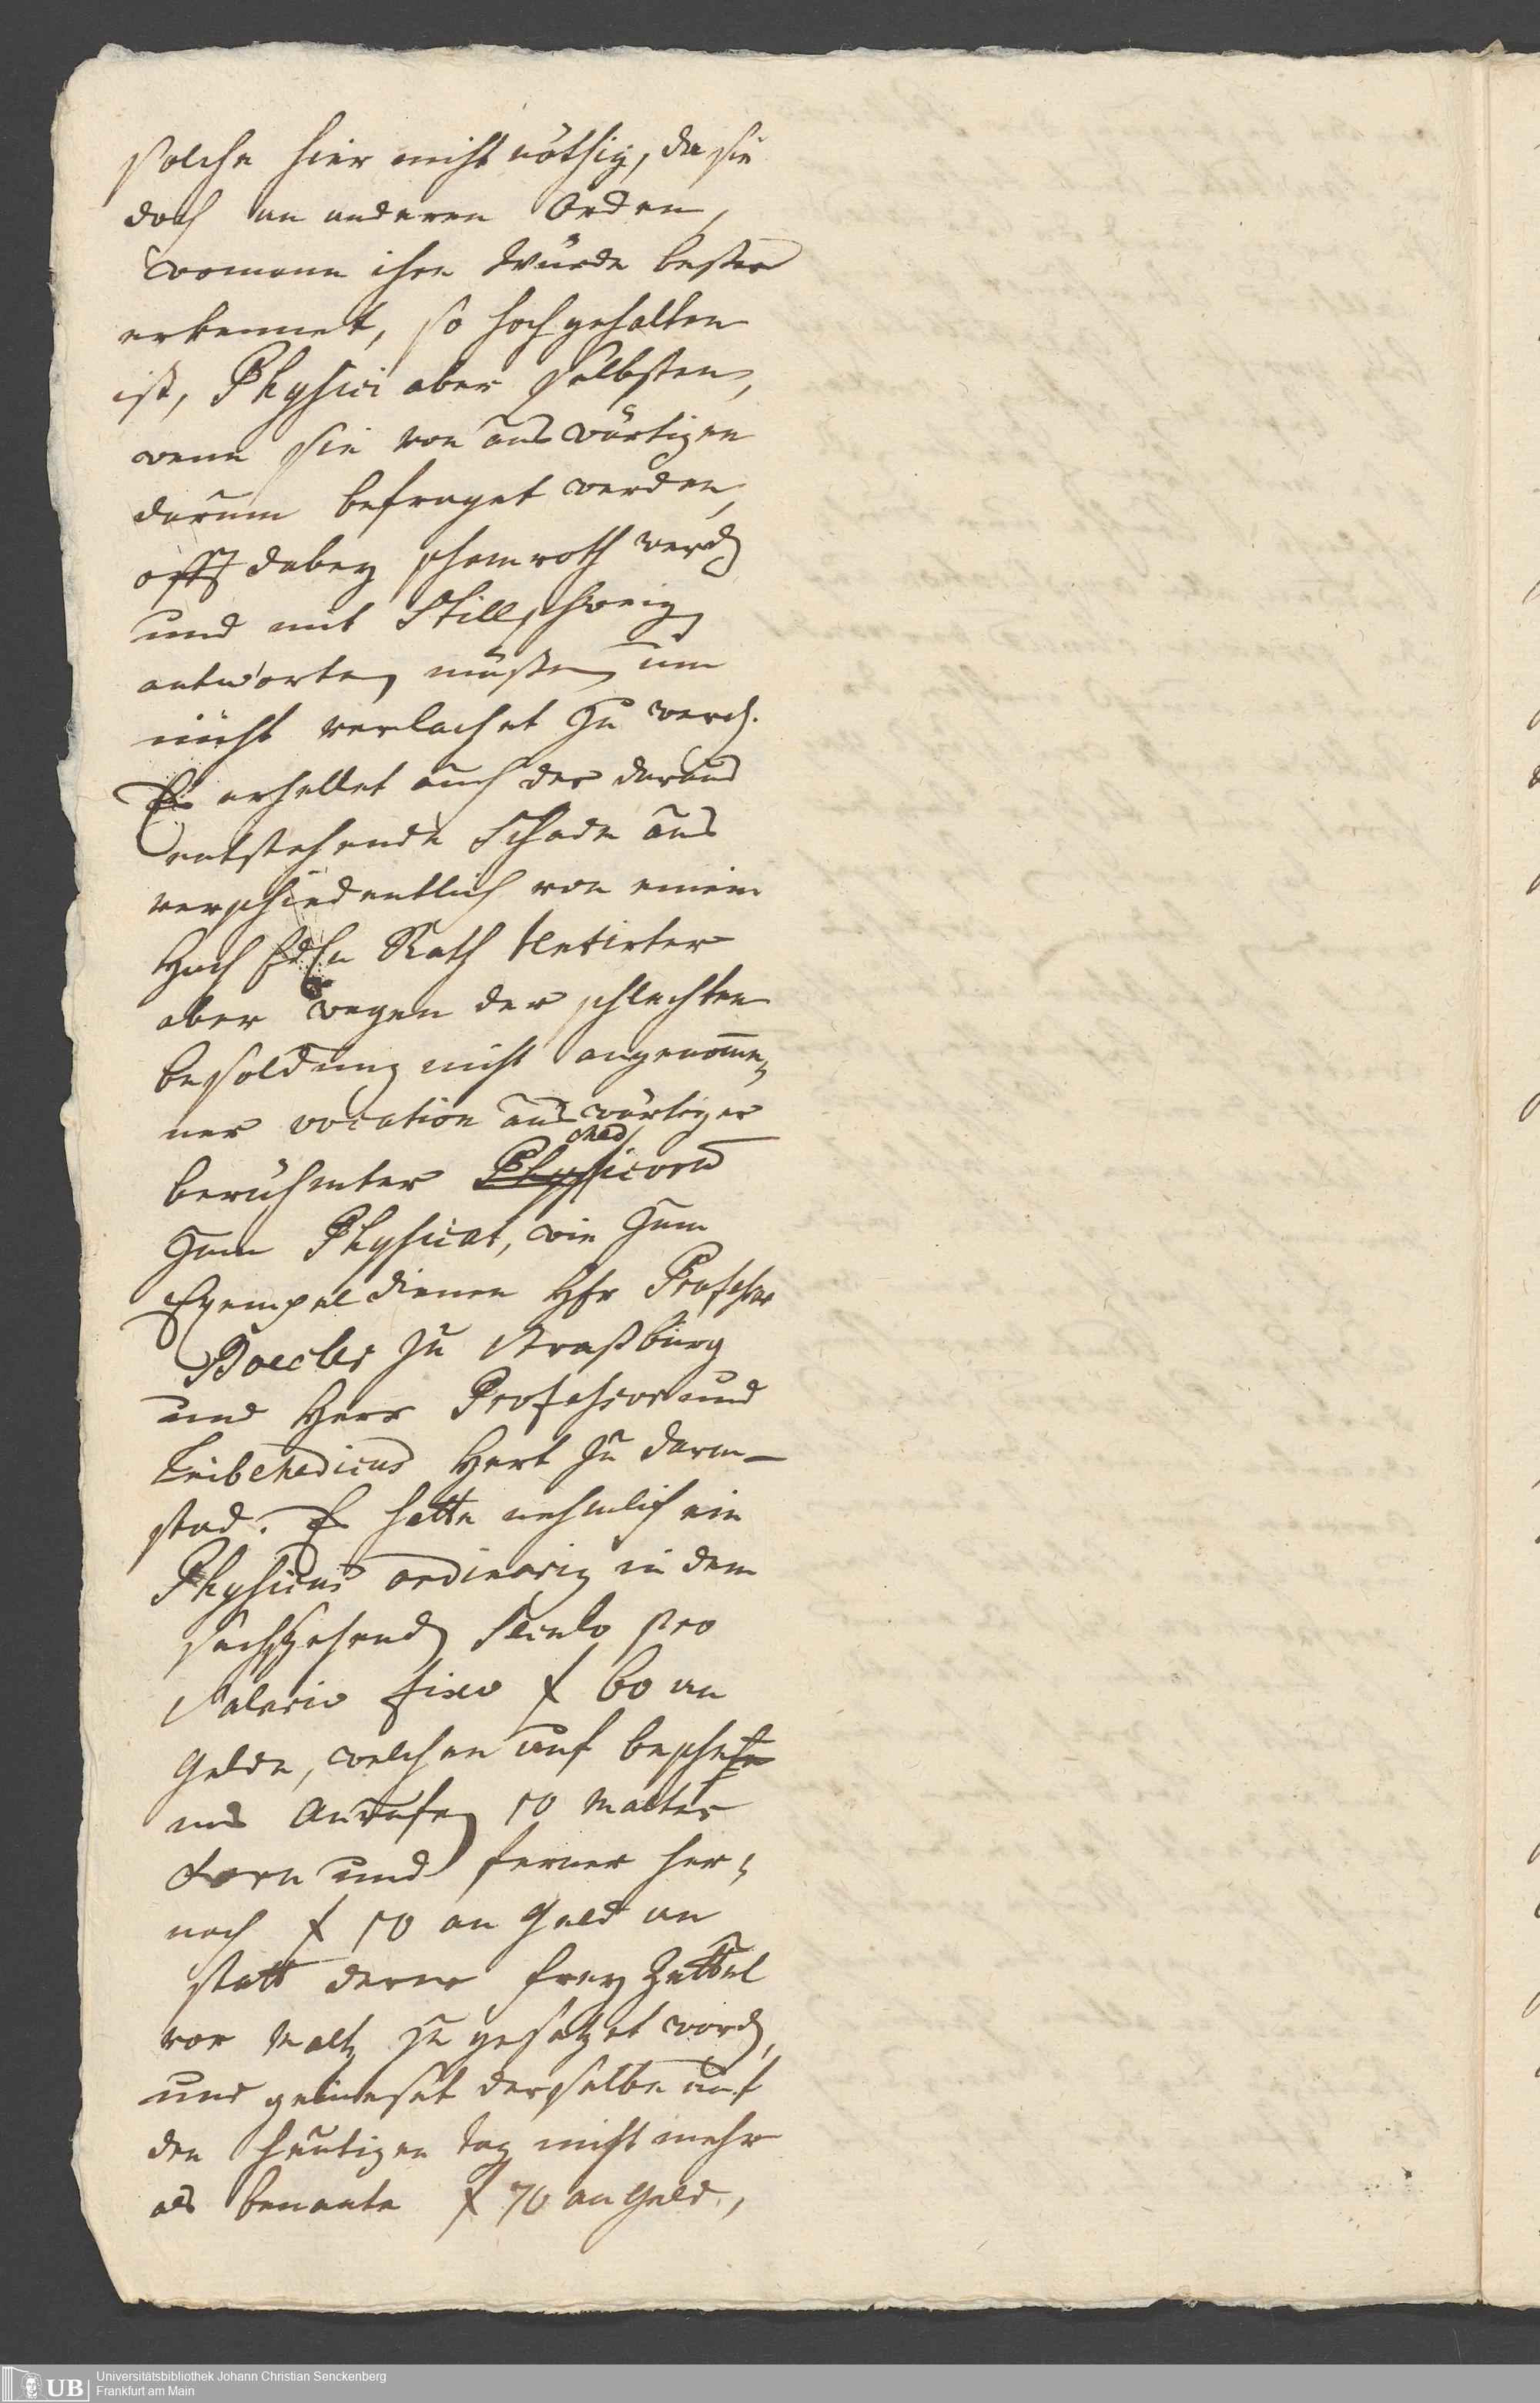 solche hier nicht nöthig, da sie
doch an anderen Orden,
womann ihre Würde besser
erkennet, so hoch gehalten
ist, Physici aber selbsten,
wenn sie von auswärtigen
darum befraget werden,
offt dabey schamroth werden
und mit Stillschweigen
antworten müssen um
nicht verlachet zu werden.
Es erhellet auch der daraus
entstehende Schade aus
verschiedentlich von einem
Hoch Edlen Rath
aber wegen der schlechten
besoldung nicht angenomme,,
ner vocation auswärtiger
Med
berühmter Physicorum
zum Physicat, wie zum
Exempel dienen Hr Professor
Boecler zu Straßburg
und Herr Professor und
LeibMedicus Hert zu Darm-
stad. Es hatte nehmlich ein
Physicus ordinarig in dem
sechszehenden Seculo pro
Salario fixo f 60 an
Gelde, welchen auf beschehe
nes Ansuchen 10 Malter
Korn und ferner her,,
nach f 10 an Geld an
statt derer frey Zettel
vor Maltz zu gesetzet worden,
und geniesset derselbe auf
den heutigen tag nicht mehr
als benante f 70 an Geld,
Universitätsbibliothek Johann Christian Senckenberg
UB
Frankfurt am Main